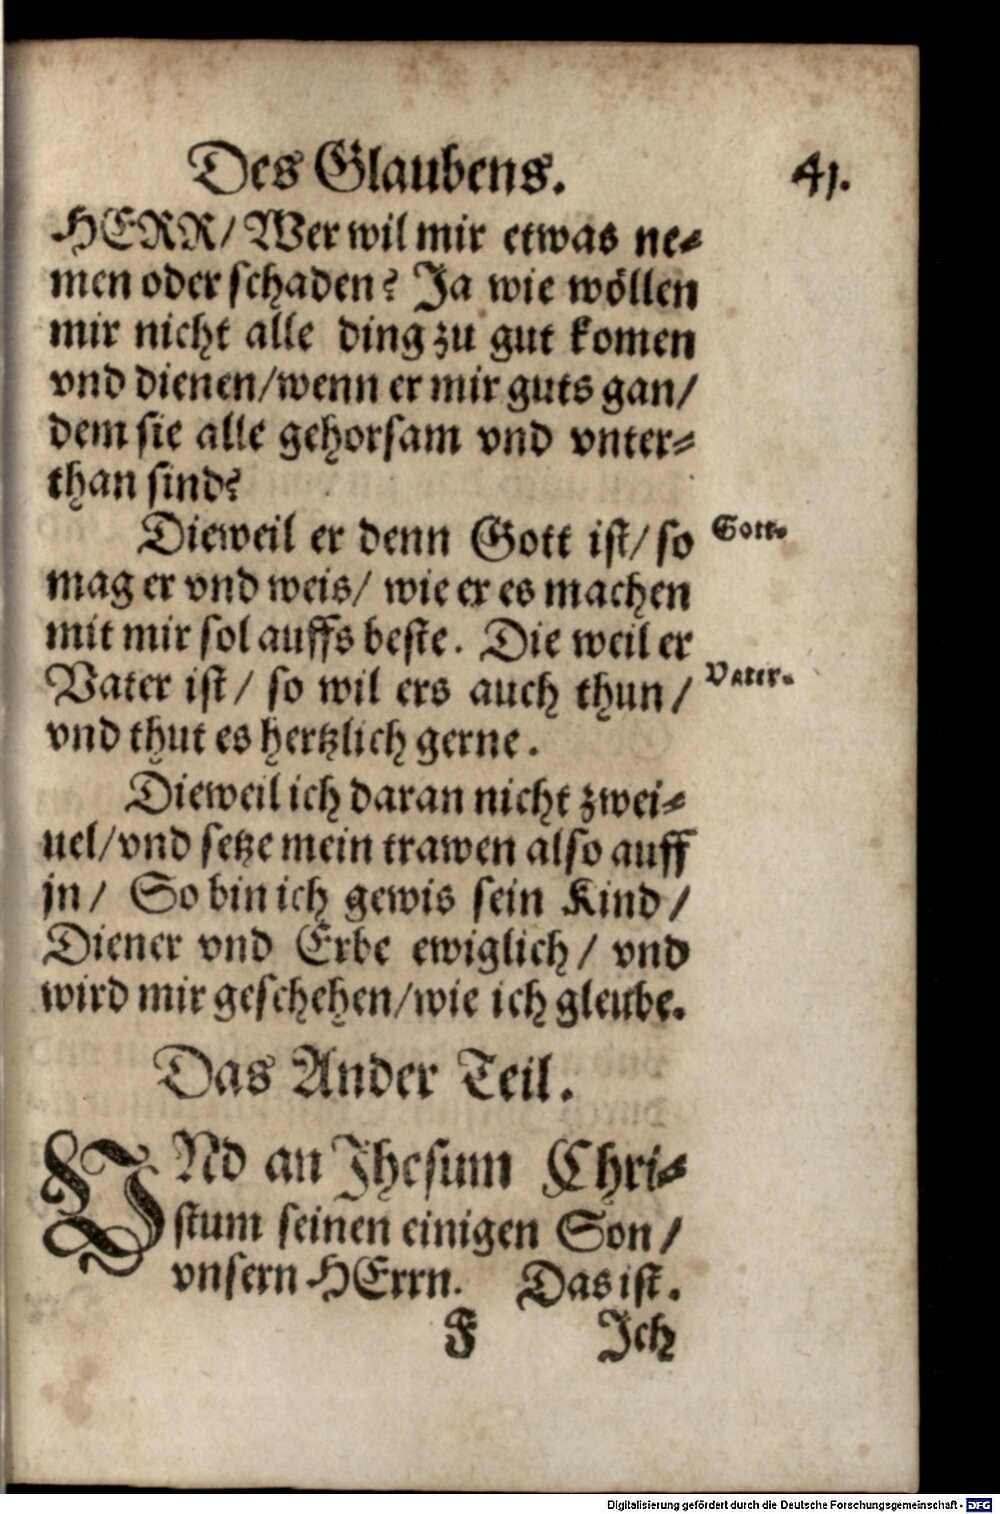 Des Glaubens. 41.
HERR/ Wer wil mir etwas ne⸗
men oder schaden? Ja wie wöllen
mir nicht alle ding zu gut komen
vnd dienen/wenn er mir guts gan/
dem sie alle gehorsam vnd vnter⸗
than sind?
Dieweil er denn Gott ist/ so Gott.
mag er vnd weis/ wie er es machen
mit mir sol auffs beste. Die weil er
Vater ist/ so wil ers auch thun/ Vater.
vnd thut es hertzlich gerne.
Dieweil ich daran nicht zwei⸗
uel/vnd setze mein trawen also auff
jn/ So bin ich gewis sein Kind/
Diener vnd Erbe ewiglich/ vnd
wird mir geschehen/wie ich gleube.
Das Ander Teil.
VNd an Jhesum Chri⸗
stum seinen einigen Son/
vnsern HErrn. Das ist.
F Ich
Digitalisierung gefördert durch die Deutsche Forschungsgemeinschaft - DFG